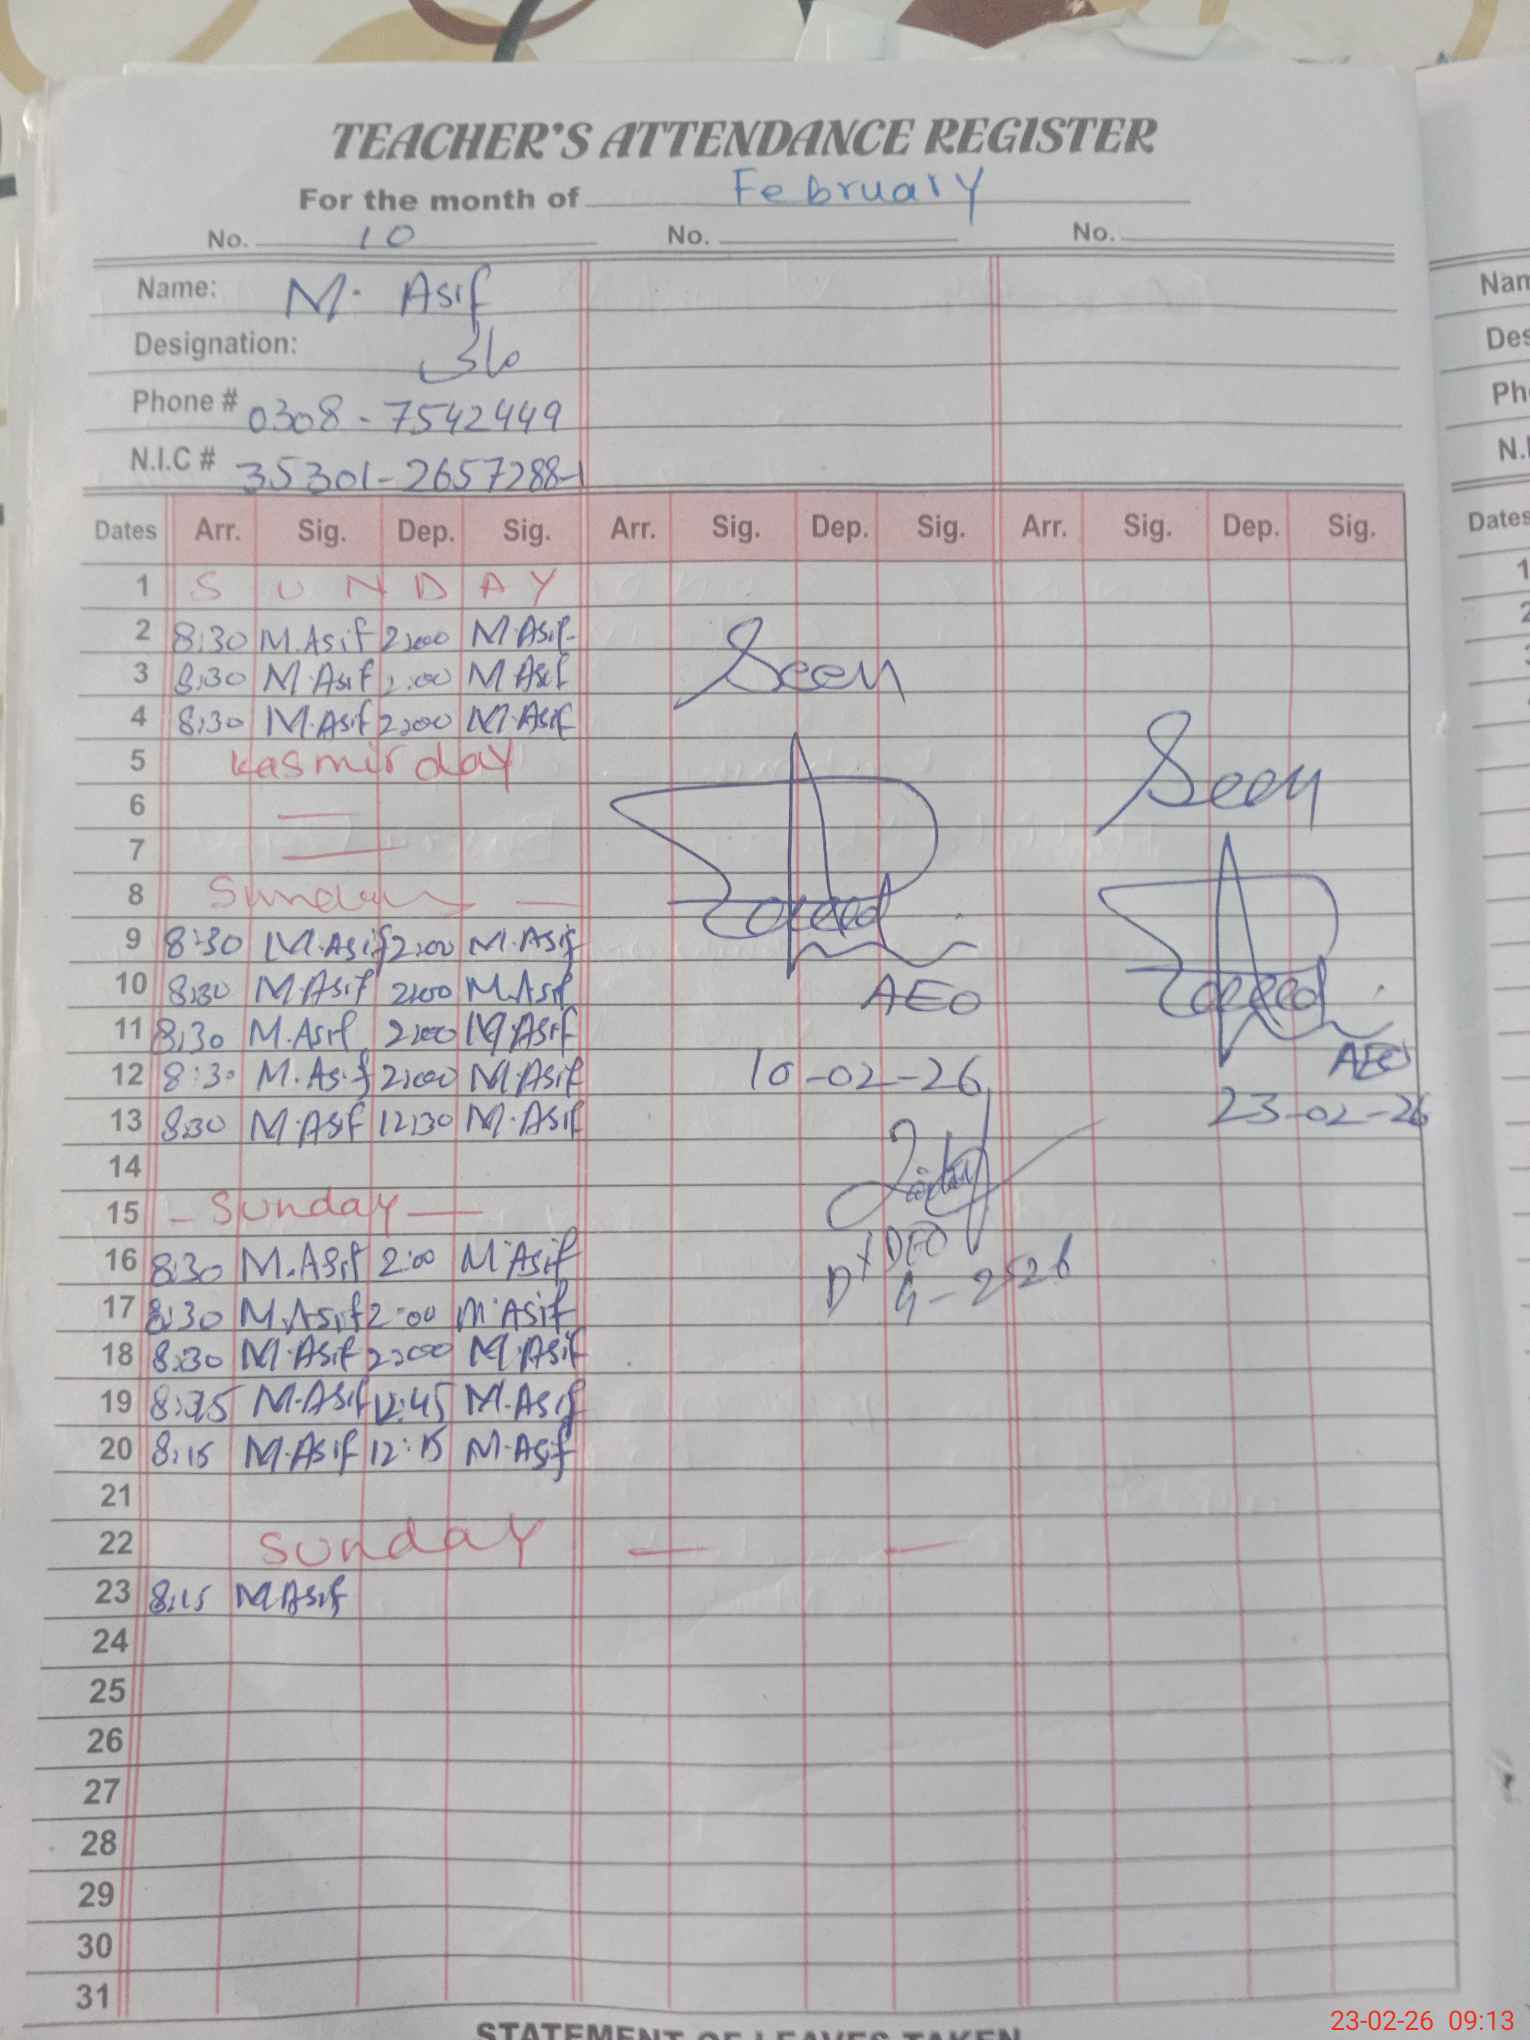 TEACHER'S ATTENDANCE REGISTER
For the month of February
No. 10 No. No.
Name: M. Asif
Designation: مالی
Phone # 0308-7542449
N.I.C # 35301-2657288-1
Dates Arr. Sig. Dep. Sig. Arr. Sig. Dep. Sig. Arr. Sig. Dep. Sig.
1 SUNDAY
2 8:30 M.Asif 2:00 M.Asif
3 8:30 M.Asif 2:00 M Asif
4 8:30 M.Asif 2:00 M.Asif
5 Kasmir day
6 —
7 —
8 Sunday —
9 8:30 M.Asif 2:00 M.Asif
10 8:30 M.Asif 2:00 M.Asif
11 8:30 M.Asif 2:00 M.Asif
12 8:30 M.Asif 2:00 M.Asif
13 8:30 M.Asif 12:30 M.Asif
14
15 - Sunday —
16 8:30 M.Asif 2:00 M.Asif
17 8:30 M.Asif 2:00 M.Asif
18 8:30 M.Asif 2:00 M.Asif
19 8:35 M.Asif 12:45 M.Asif
20 8:15 M.Asif 12:15 M.Asif
21
22 Sunday — —
23 8:15 M.Asif
24
25
26
27
28
29
30
31
Seen
AEO
10-02-26
Seen
AEO
23-02-26
STATEMENT OF LEAVES TAKEN
Dates
23-02-26 09:13